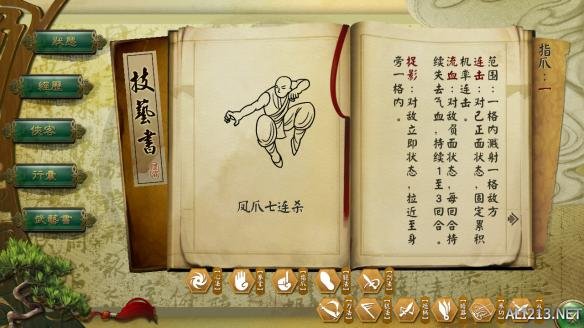 狀態
經歷
俠客
行囊
武藝書
技藝書
风爪七连杀
范围：一格内溅射一格敌方
连击：对己正面状态，固定累积
机率连击。
流血：对敌负面状态，每回合持
续失去气血，持续1至3回合。
捉影：对敌立即状态，拉近至身
旁一格内。
指爪：一
ALI213.NET